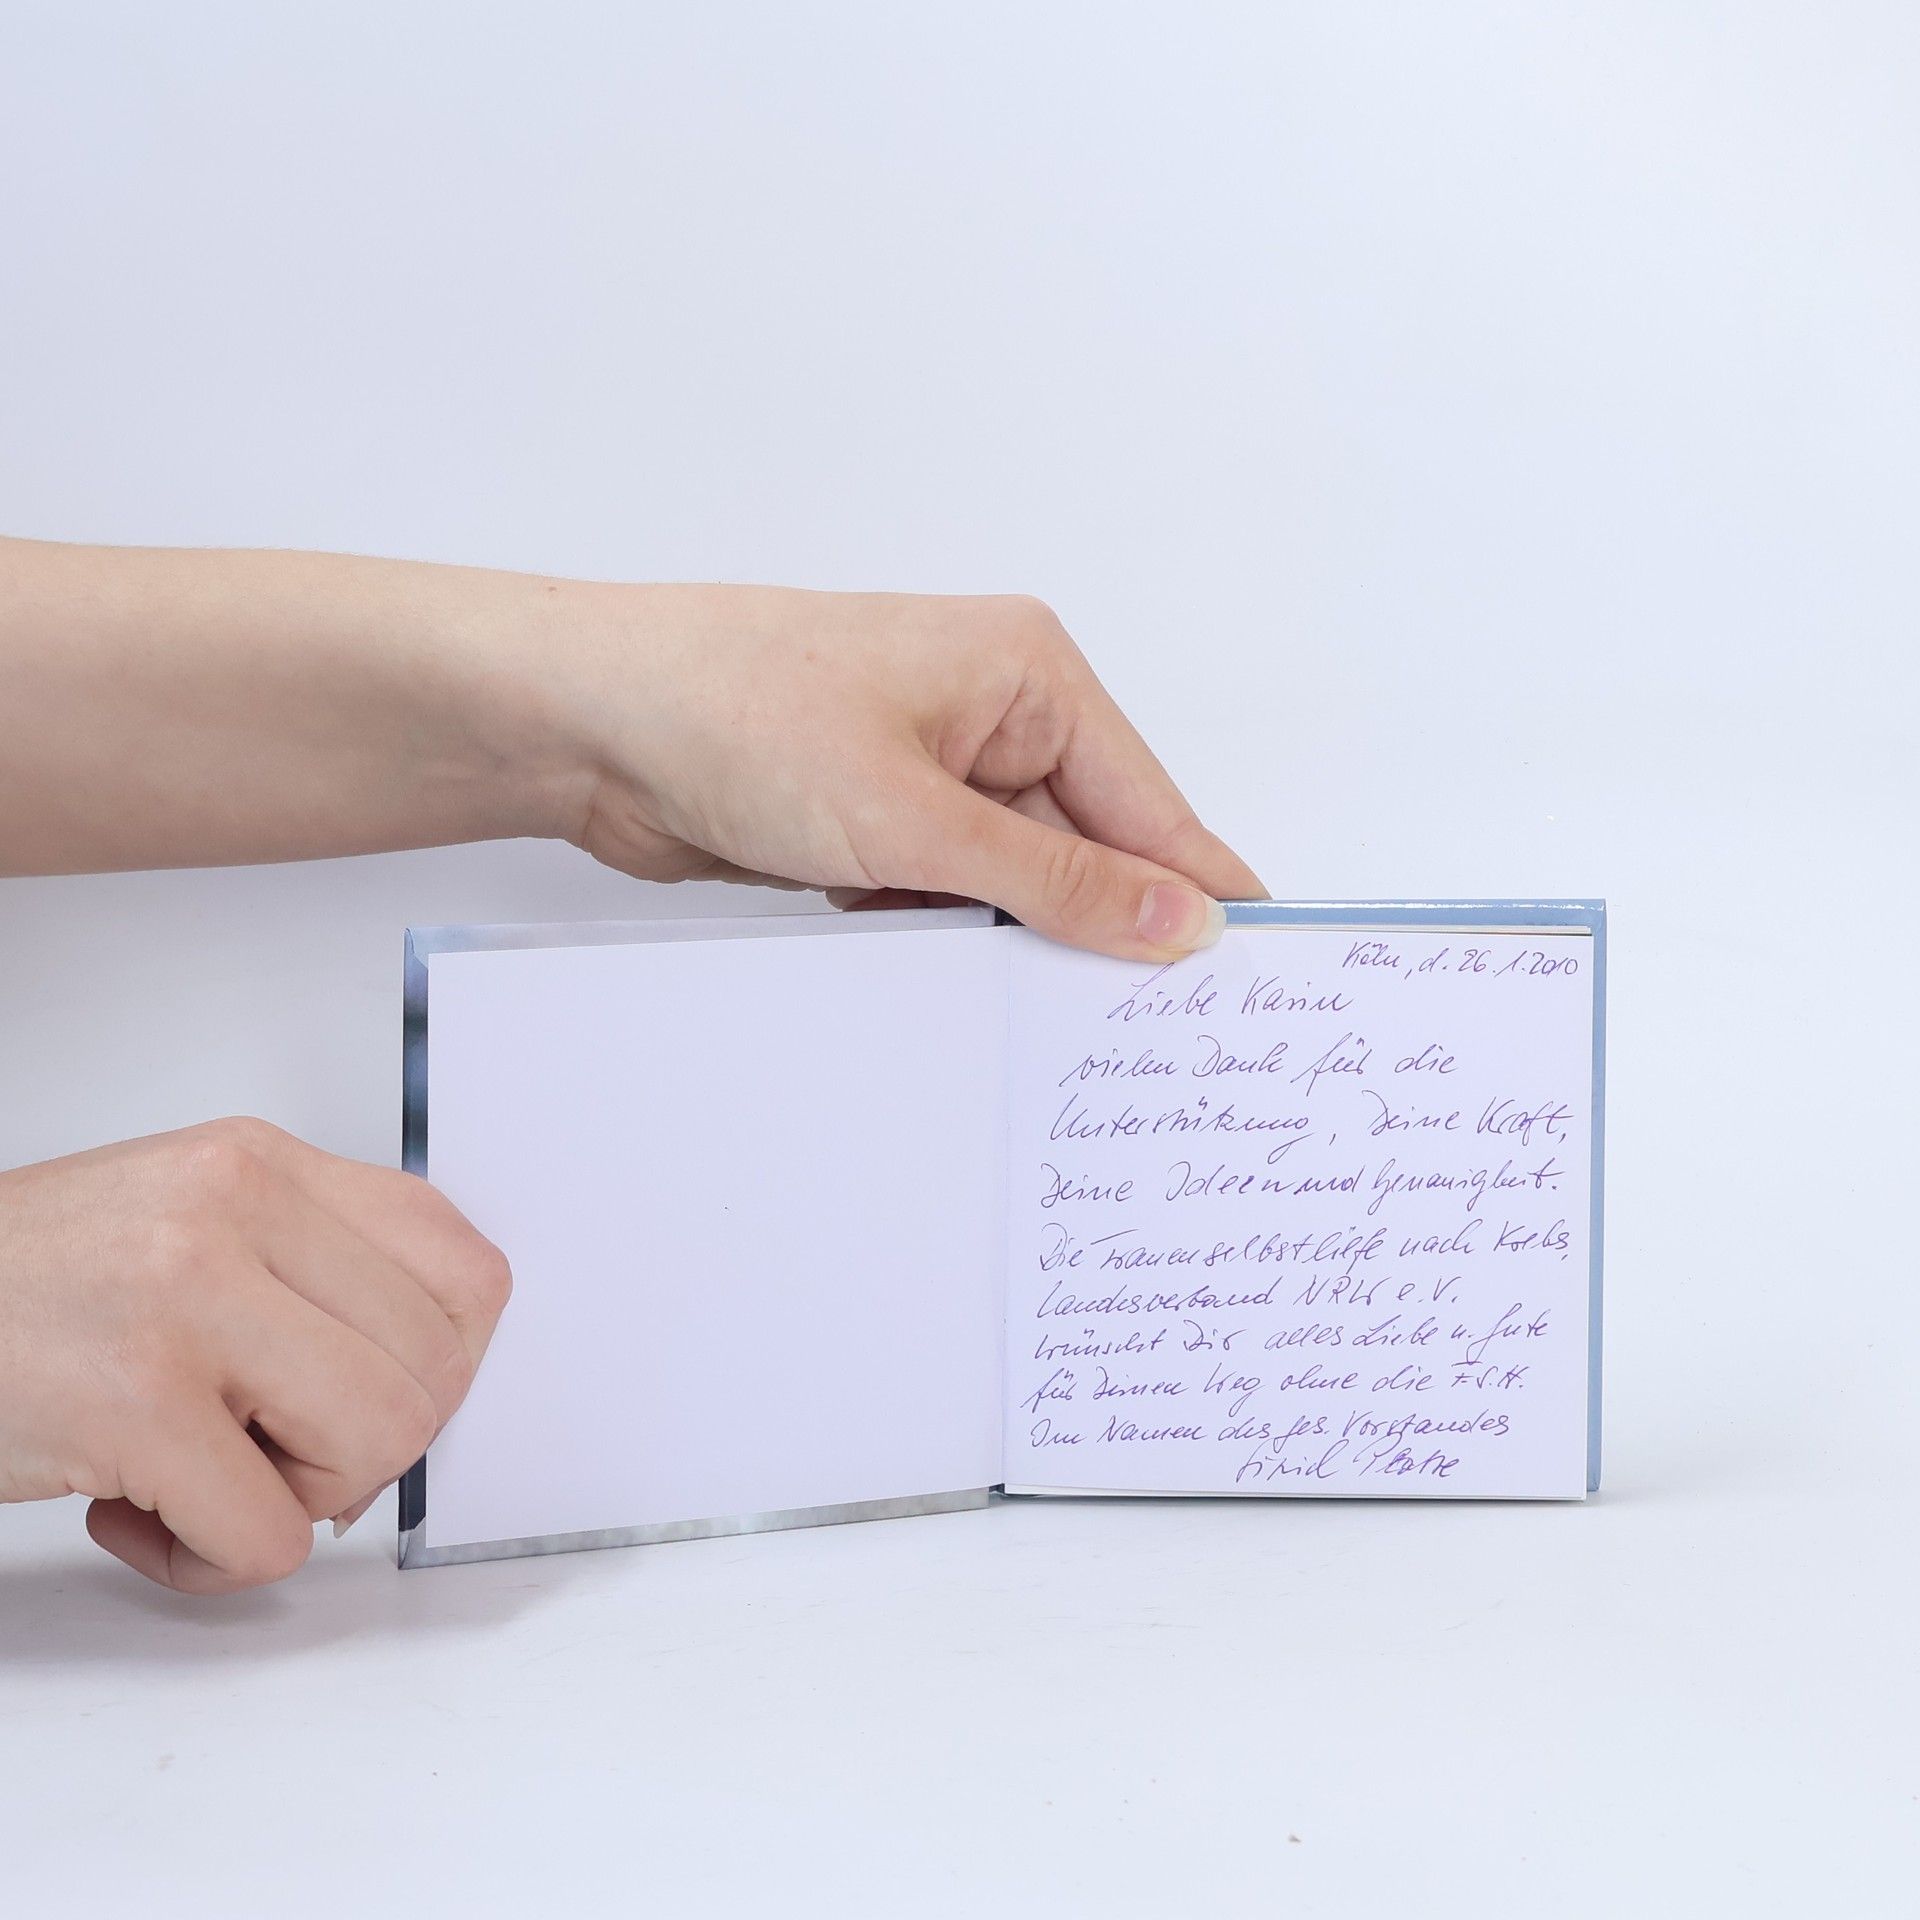 Köln, d. 26.1.2010
Liebe Karin
vielen Dank für die
Unterstützung, Deine Kraft,
Deine Ideen und Genauigkeit.
Die Frauenselbsthilfe nach Krebs,
Landesverband NRW e.V.
wünscht Dir alles Liebe u. Gute
für Deinen Weg ohne die F.S.H.
Im Namen des ges. Vorstandes